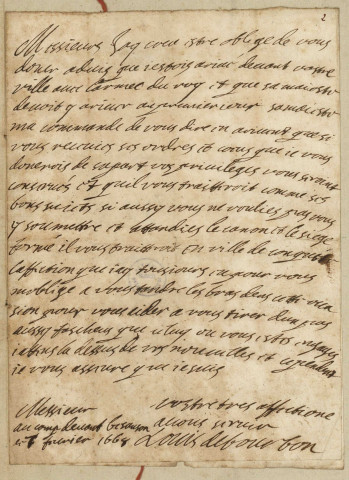 2
Messieurs Jay creu estre obligé de vous
doner advis que jestois arivé devant vostre
ville avec larmee du roy et que sa majesté
devoit y ariver au premier jour sa majesté
ma commandé de vous dire en arivant que si
vous receviés ses ordres et ceux que je vous
donerois de sa part vos privileges vous seroient
conservés et quil vous traiteroit comme ses
bons sujets si aussy vous ne vouliés pas vous
y soumettre et atendiés le canon et le siege
formé il vous traiteroit en ville de conqueste
laffection que jay tousjours eu pour vous
moblige a vous tendre les bras dans cette occa
sion pour vous aider a vous tirer dun pas
aussy fascheux que celuy ou vous estes
jatens la dessus de vos nouvelles et cependant
je vous assure que je suis
Messieurs
vostre tres affectioné
a vous servir
au camp devant besanson
ce 7 fevrier 1668
Louis de bourbon